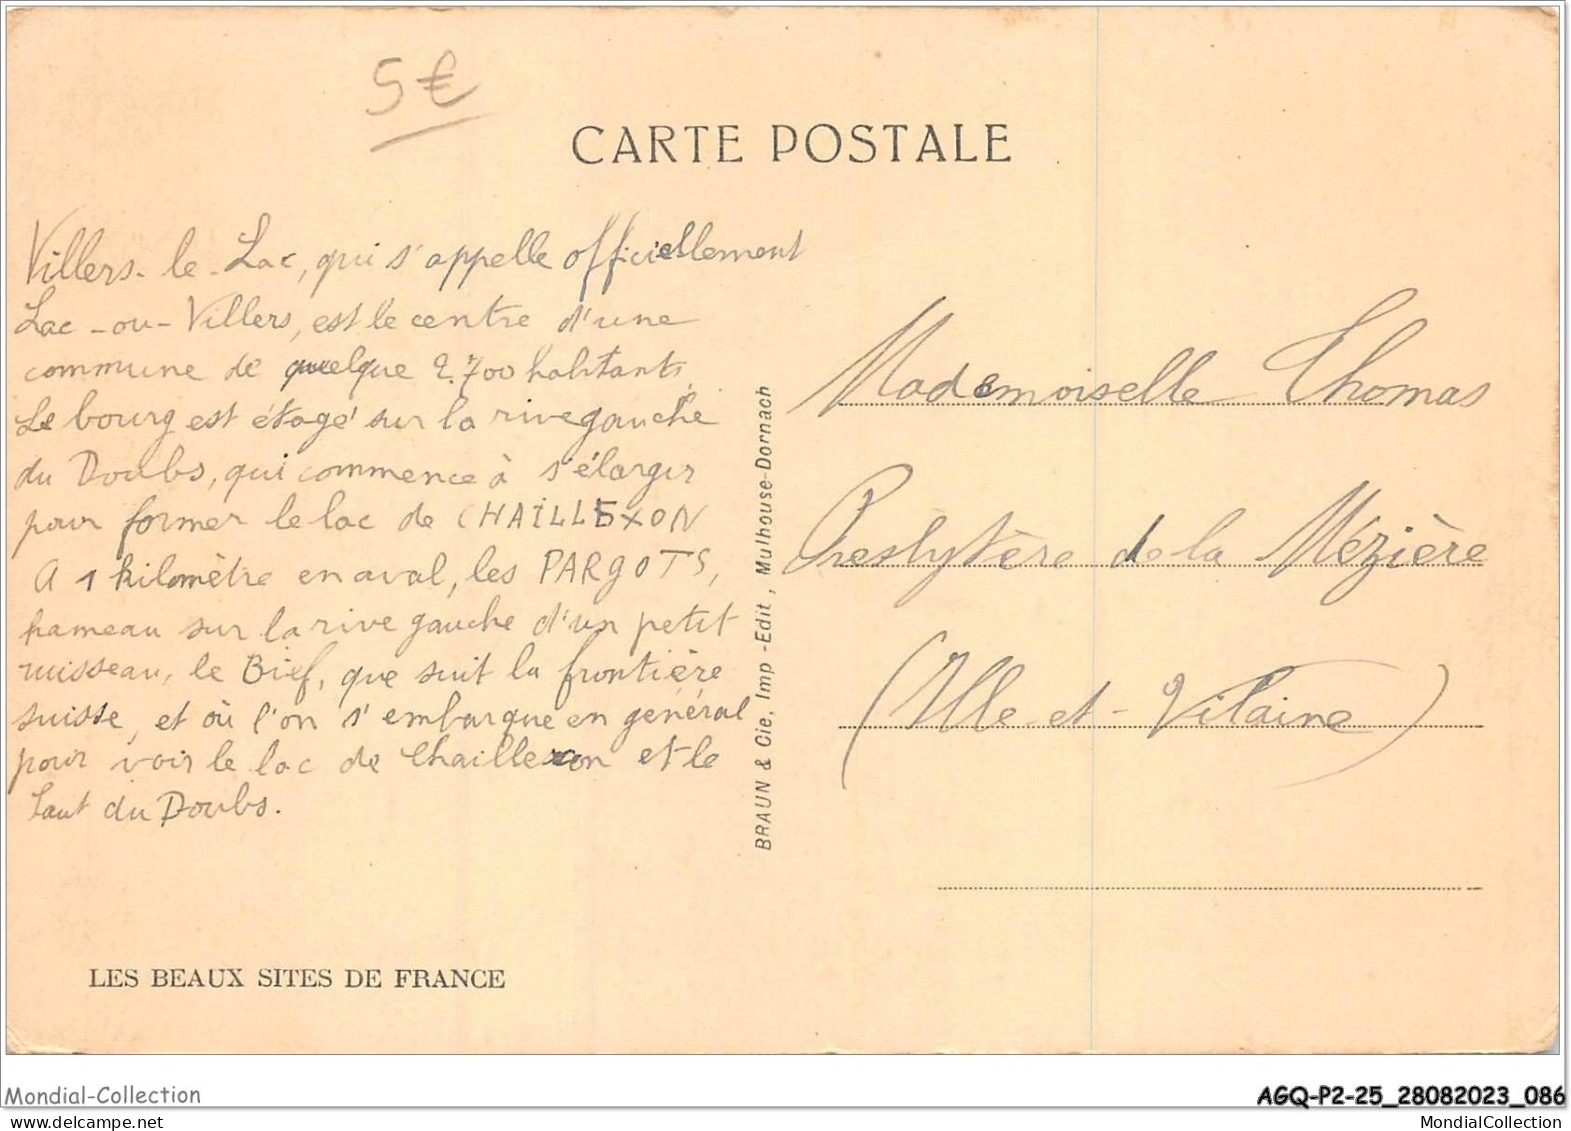 5€
CARTE POSTALE
Villers-le-Lac, qui s'appelle officiellement
Lac-ou-Villers, est le centre d'une
commune de quelque 2.700 habitants.
Le bourg est étagé sur la rive gauche
du Doubs, qui commence à s'élargir
pour former le lac de CHAILLEXON
A 1 kilomètre en aval, les PARGOTS,
hameau sur la rive gauche d'un petit
ruisseau, le Bief, que suit la frontière
suisse, et où l'on s'embarque en général
pour voir le lac de Chaillexon et le
Saut du Doubs.
LES BEAUX SITES DE FRANCE
BRAUN & Cie, Imp-Edit, Mulhouse-Dornach
Mademoiselle Thomas
Presbytère de la Mézière
(Ille-et-Vilaine)
Mondial-Collection
AGQ-P2-25_28082023_086
MondialCollection